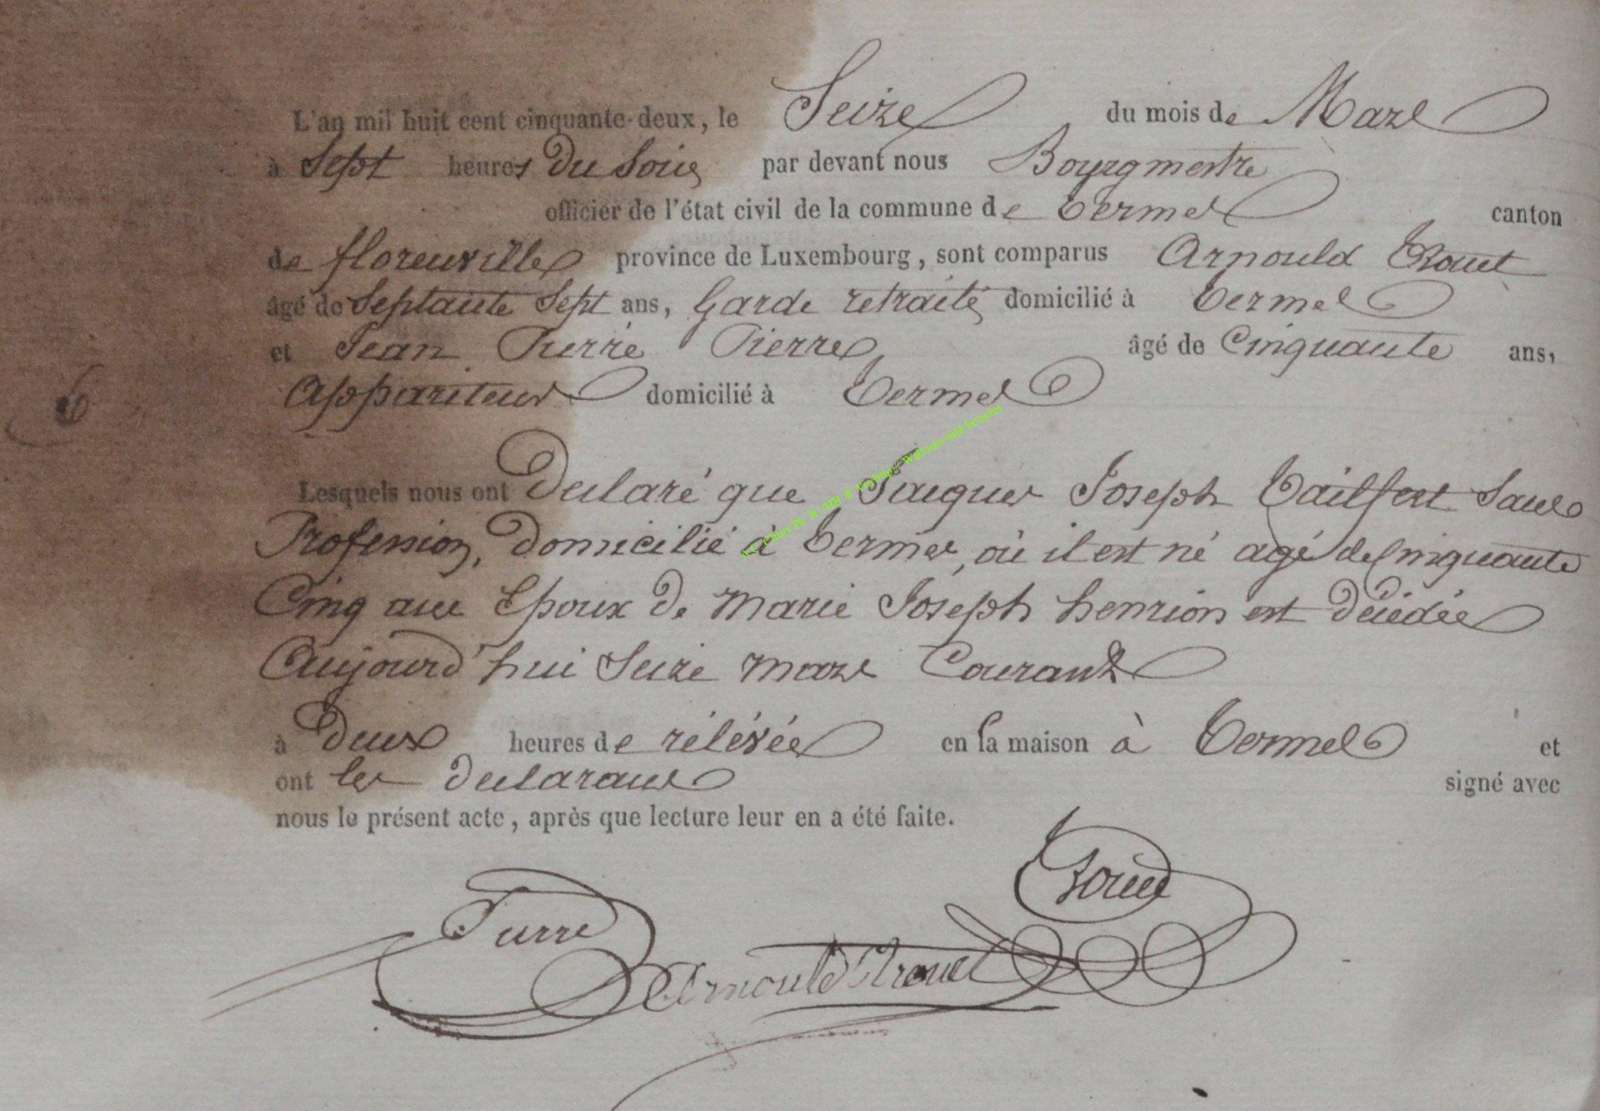 L'an mil huit cent cinquante-deux, le Seize du mois de Mars
à Sept heures du Soir par devant nous Bourgmestre
officier de l'état civil de la commune de Termes canton
de florenville province de Luxembourg, sont comparus Arnould Trouet
âgé de Septante Sept ans, Garde retraité domicilié à Termes
et Jean Pierre Pierre âgé de Cinquante ans,
Appariteur domicilié à Termes
6
Lesquels nous ont declaré que Jacques Joseph Tailfert Sans
Profession, domicilié à Termes, où il est né agé de Cinquante
Cinq ans Epoux de Marie Joseph henrion est décédée
Aujourd'hui Seize mars Courant
à deux heures de rélévée en la maison à Termes et
ont les declarans signé avec
nous le présent acte, après que lecture leur en a été faite.
Pierre
Arnould Trouet